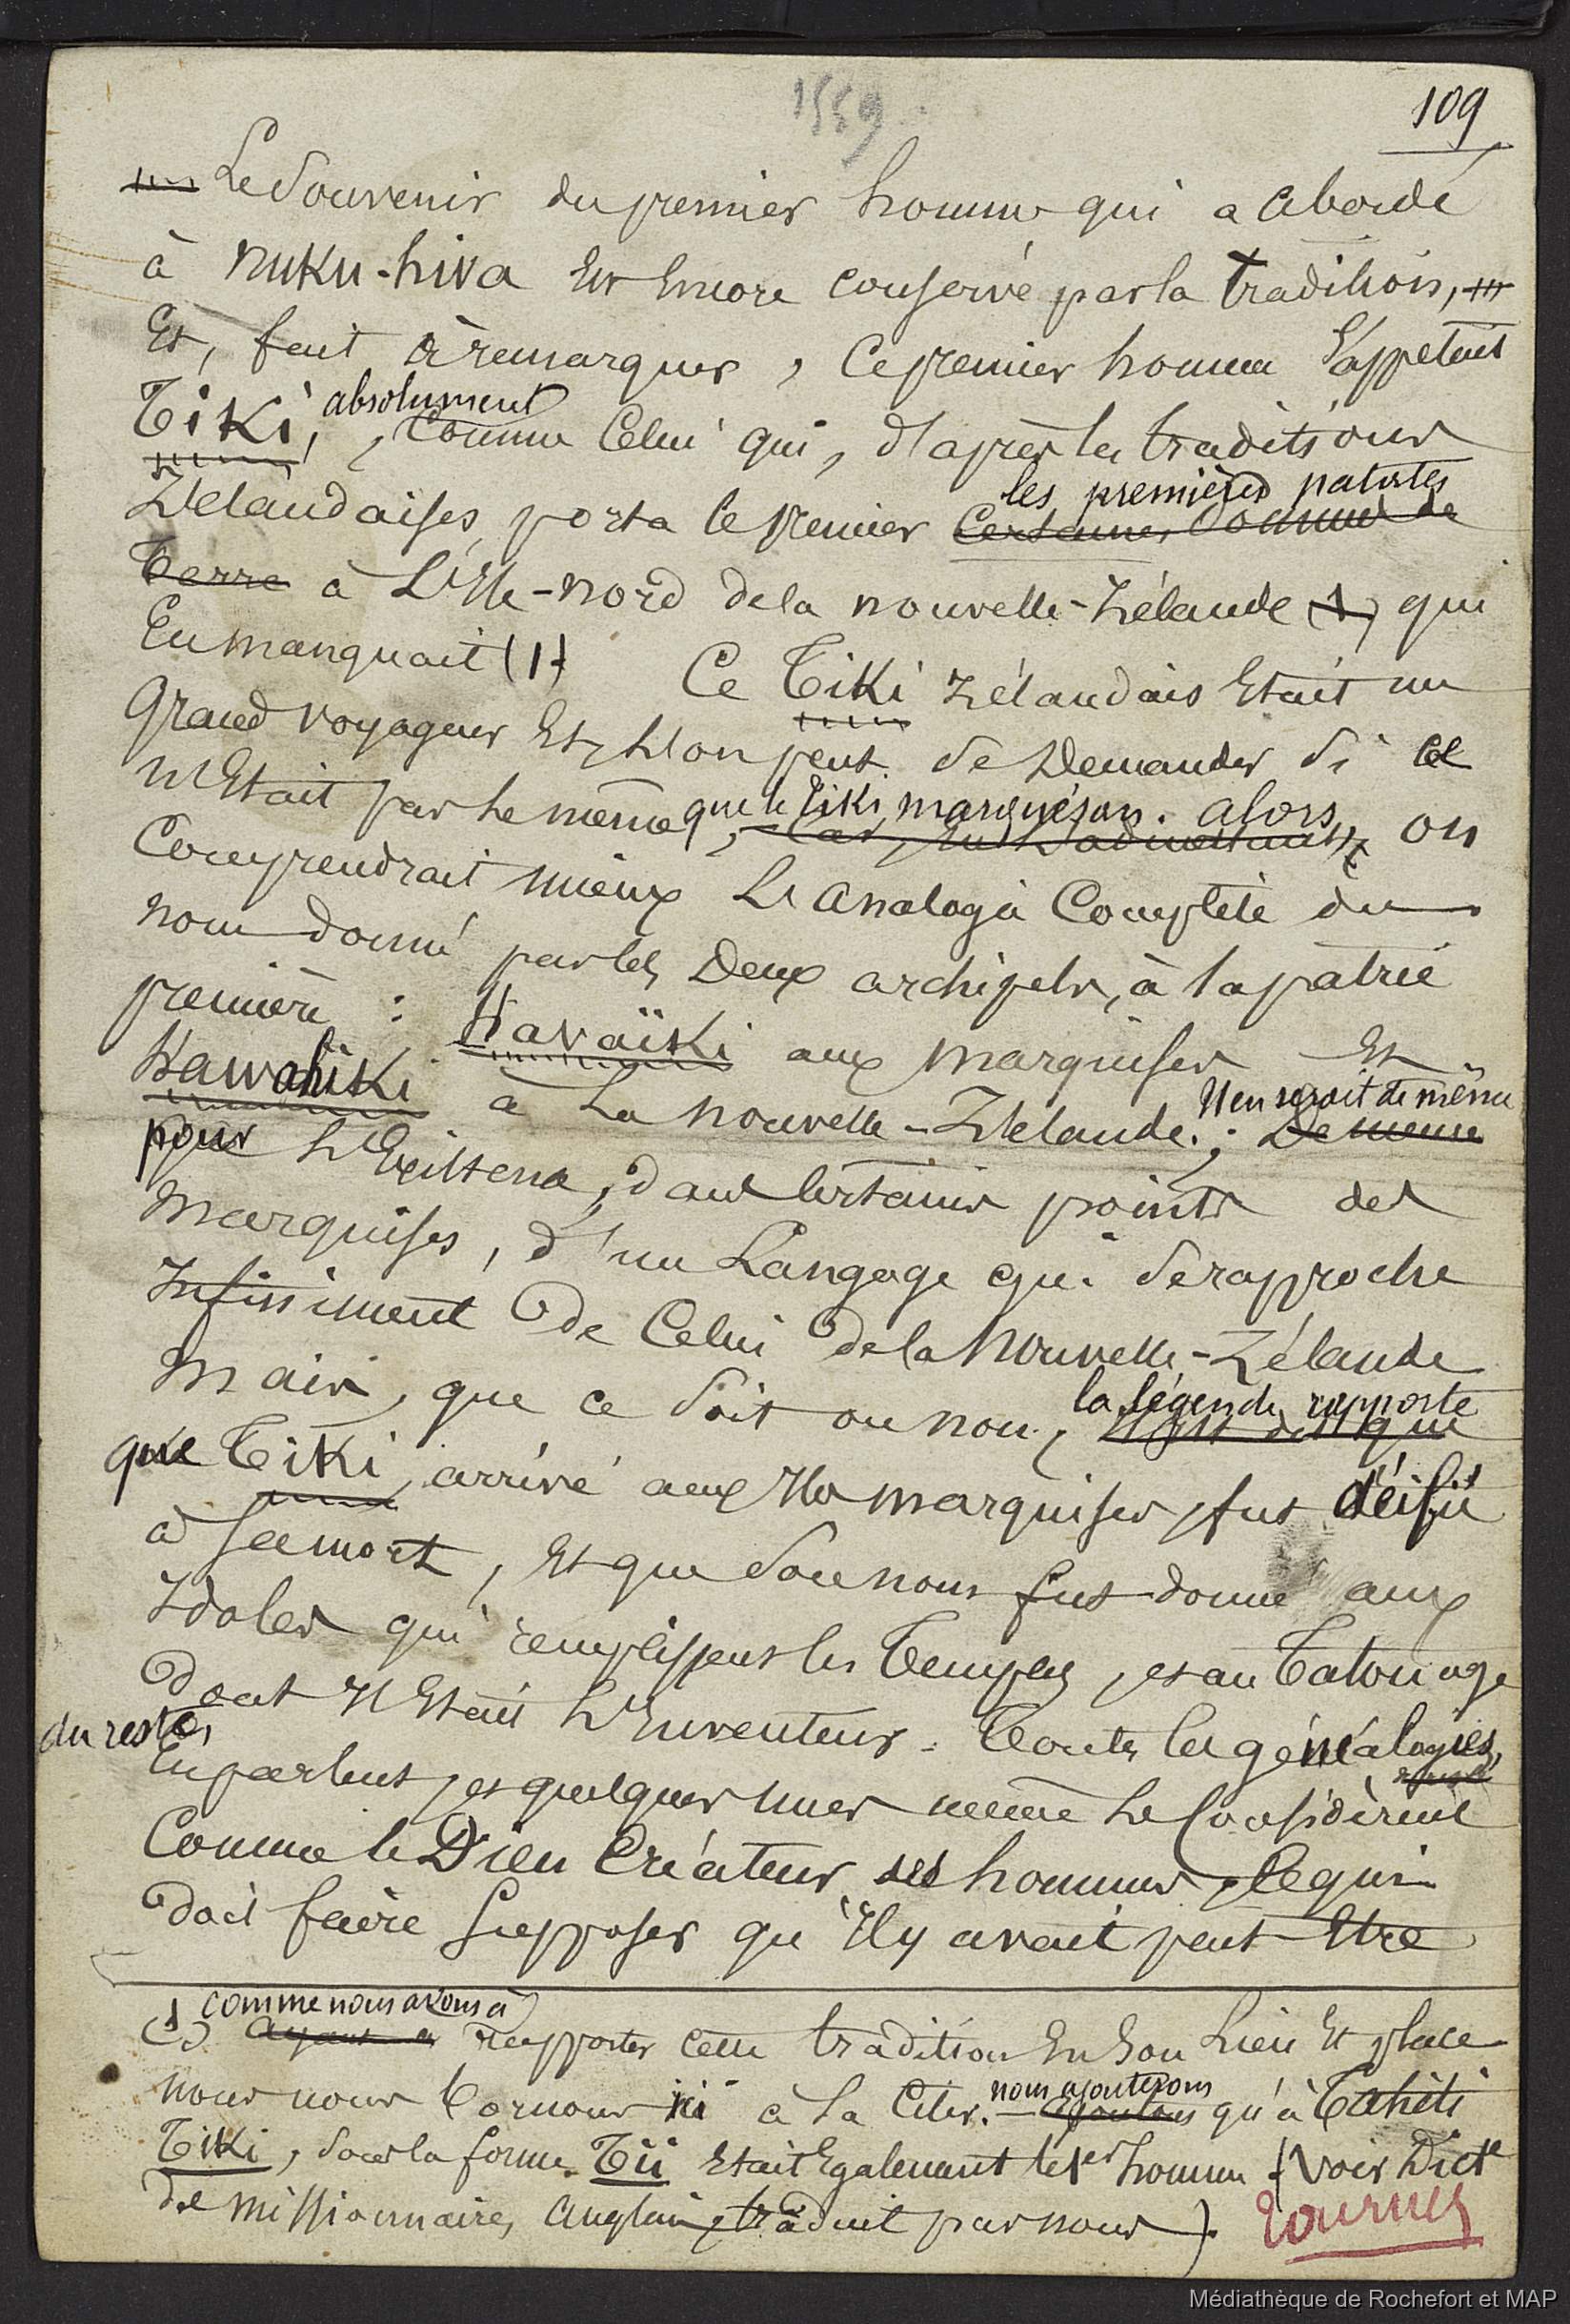 1559
109
Le Souvenir du premier homme qui a abordé
à Nuku-hiva Est Encore conservé par la tradition,
Et, fait à remarquer, Ce premier homme S'appelait
absolument
Tiki, Comme Celui qui, d'après les traditions
les premières patates
Zélandaises, porta le premier Certaines Pommes de
Terre à L'Ile-Nord de la Nouvelle-Zélande (1) qui
En manquait (1) Ce Tiki Zélandais Etait un
Grand voyageur Et, L'on peut Se Demander Si Ce
que le Tiki marquésan. alors,
N'Etait pas Le même, Car, En L'admettant, on
Comprendrait mieux L'Analogie Complète du
nom donné par les Deux archipels, à la patrie
première : Havaïki aux Marquises Et
Il en serait de même
Hawahiki à La Nouvelle-Zélande. ; De même
pour L'Existence, dans Certains points des
Marquises, d'un Langage qui Se rapproche
Infiniment de Celui de la Nouvelle-Zélande
la légende rapporte
Mais, que ce Soit ou non, Il est dit que
que Tiki, arrivé aux Iles Marquises, fut déifié
à Sa mort, Et que Son nom fut donné aux
Idoles qui remplissent les Temples, et au Tatouage
Dont Il Etait L'Inventeur. Toutes les généalogies,
du reste,
En parlent, et quelques unes même Le Considèrent
Comme le Dieu Créateur des hommes, Ce qui
doit faire Supposer qu'Il y avait peut-Etre
comme nous avons à
(1) Ayant à rapporter cette tradition En Son Lieu Et place
nous ajouterons
nous nous bornons ici à La Citer. - ajoutons qu'à Tahiti
Tiki, Sous la forme Tii Etait Egalement le 1er homme (Voir Dictre
de missionnaires Anglais, traduit par nous).
Tournez
Médiathèque de Rochefort et MAP